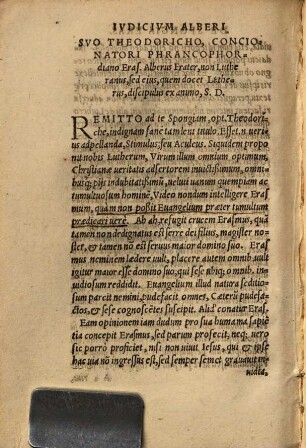 IVDICIVM ALBERI
SVO THEODORICHO, CONCIO-
NATORI PHRANCOPHOR-
diano Eras. Alberus Erater, non Luthe
ranus, sed eius, quem docet Luthe-
rus, discipulus ex animo, S. D.
REMITTO ad te Spongiam, opt. Theodori-
che, indignam sanè tam leni titulo, Esset.n. uerius
adpellanda, Stimulus, seu Aculeus. Siquidem propo
nit nobis Lutherum, Virum illum omnium optimum,
Christianæ ueritatis adsertorem inuictissimum, omni-
busq́; pijs indubitatissimũ, uelut uanum quempiam ac
tumultuosum hominẽ, Video nondum intelligere Eras
mum, quàm non possit Euangelium præter tumultum
prædicari uerè. Ab ab refugit crucem Erasmus, quã
tamen non dedignatus est ferre dei filius, magister no-
ster, & tamen nõ est seruus maior domino suo. Eras
mus neminem lædere uult, placere autem omnib.uult
igitur maior esse domino suo, qui sese ubiq; omnib. in-
uidiosum reddidit. Euangelium illud natura seditio-
sum parcit nemini, pudefacit omnes, Cæterũ pudefa-
ctos, & sese cognoscẽtes suscipit. Alid conatur Eras.
Eam opinionem iam dudum pro sua humana sapiẽ
tia concepit Erasmus, sed parum profecit, neq; uero
sic porrò proficiet, nisi non uiuit Iesus, qui & ipse
hac uia nõ ingressus est, sed semper semet grauauit in-
uidia,